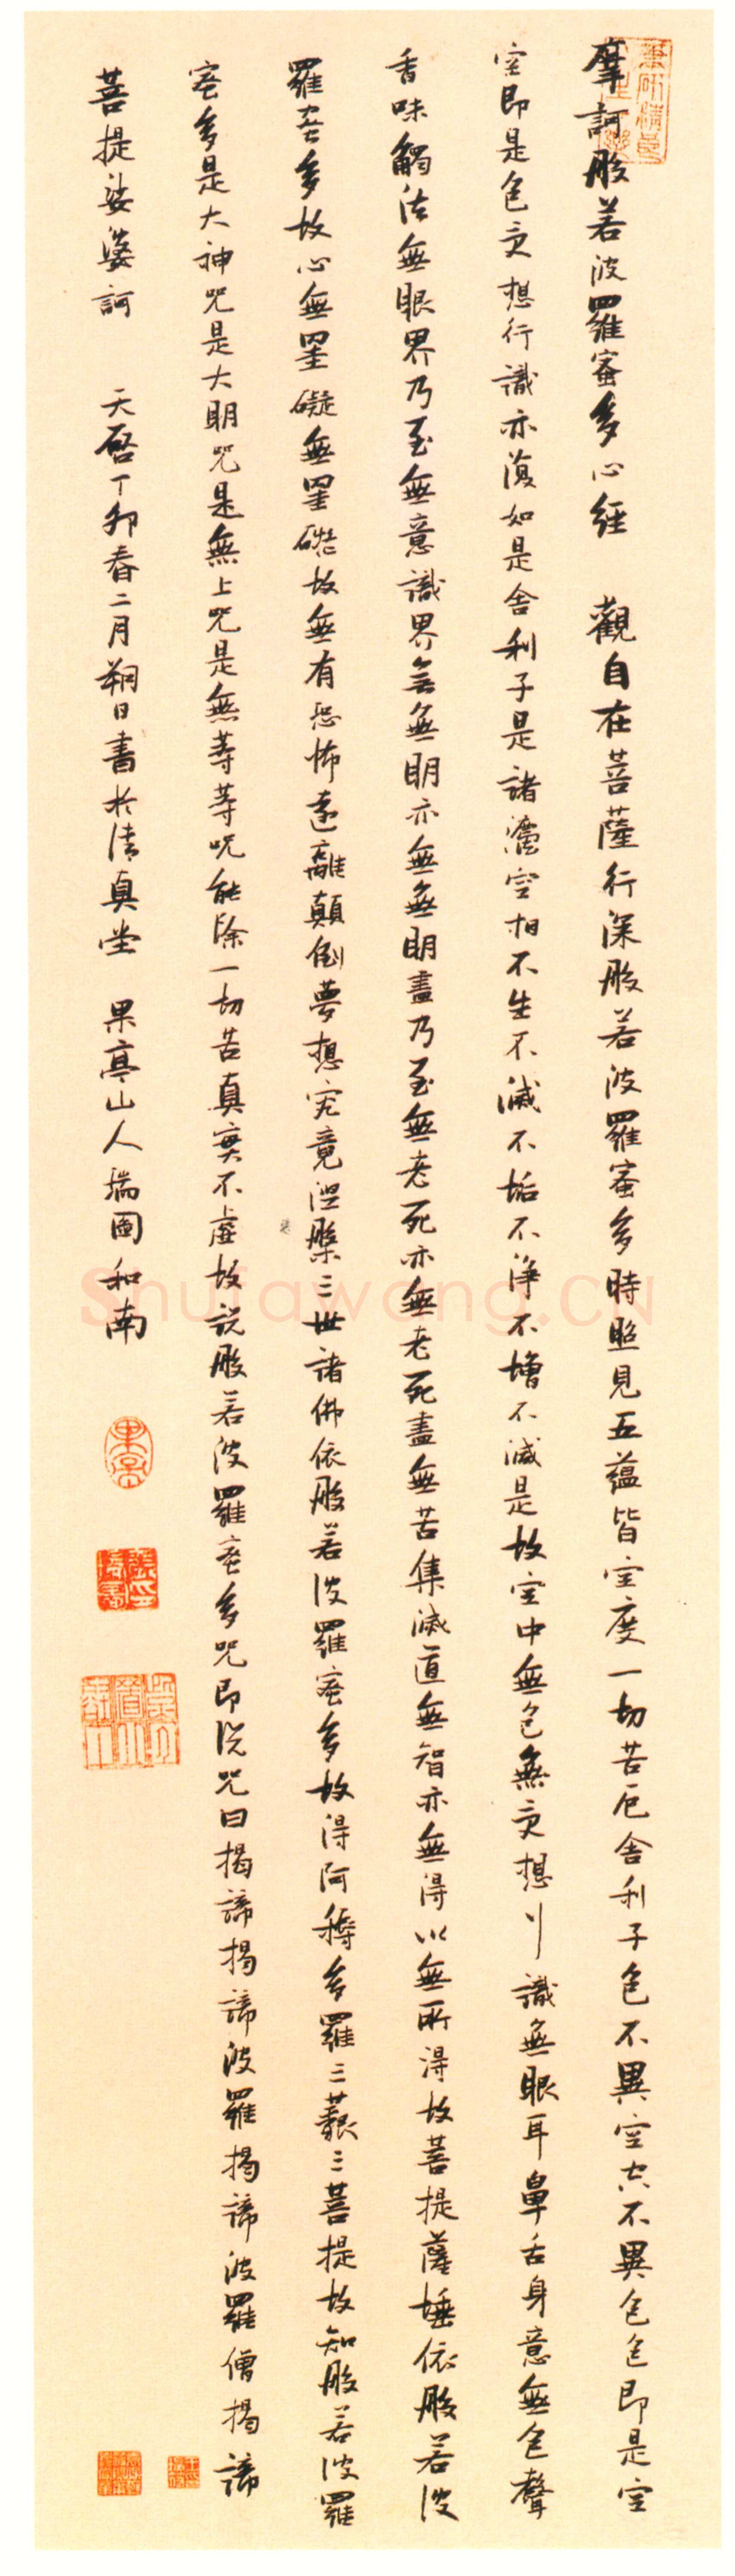 摩訶般若波羅蜜多心經 觀自在菩薩行深般若波羅蜜多時照見五蘊皆空度一切苦厄舍利子色不異空空不異色色即是空
空即是色受想行識亦復如是舍利子是諸灋空相不生不滅不垢不淨不增不減是故空中無色無受想行識無眼耳鼻舌身意無色聲
香味觸法無眼界乃至無意識界無無明亦無無明盡乃至無老死亦無老死盡無苦集滅道無智亦無得以無所得故菩提薩埵依般若波
羅蜜多故心無罣礙無罣礙故無有恐怖遠離顛倒夢想究竟涅槃三世諸佛依般若波羅蜜多故得阿耨多羅三藐三菩提故知般若波羅
蜜多是大神咒是大明咒是無上咒是無等等咒能除一切苦真實不虛故說般若波羅蜜多咒即說咒曰揭諦揭諦波羅揭諦波羅僧揭諦
菩提娑婆訶 天啓丁卯春二月朔日書於清真堂 果亭山人瑞圖和南
果亭
Shufawang.CN